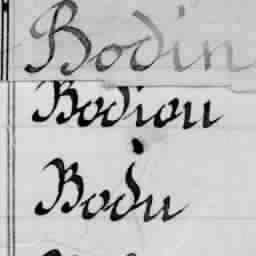 Bodin
Bodiou
Bodu